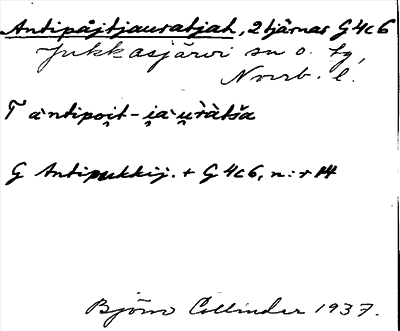 Antipåjtjauratjah, 2 tjärnar G4c6
Jukkasjärvi sn o. tg,
Nvrb. l.
T àntipoi̯t-i̯àu̯ràtša
G Antipukkij. + G4c6, n:r 14
Björn Collinder 1937.